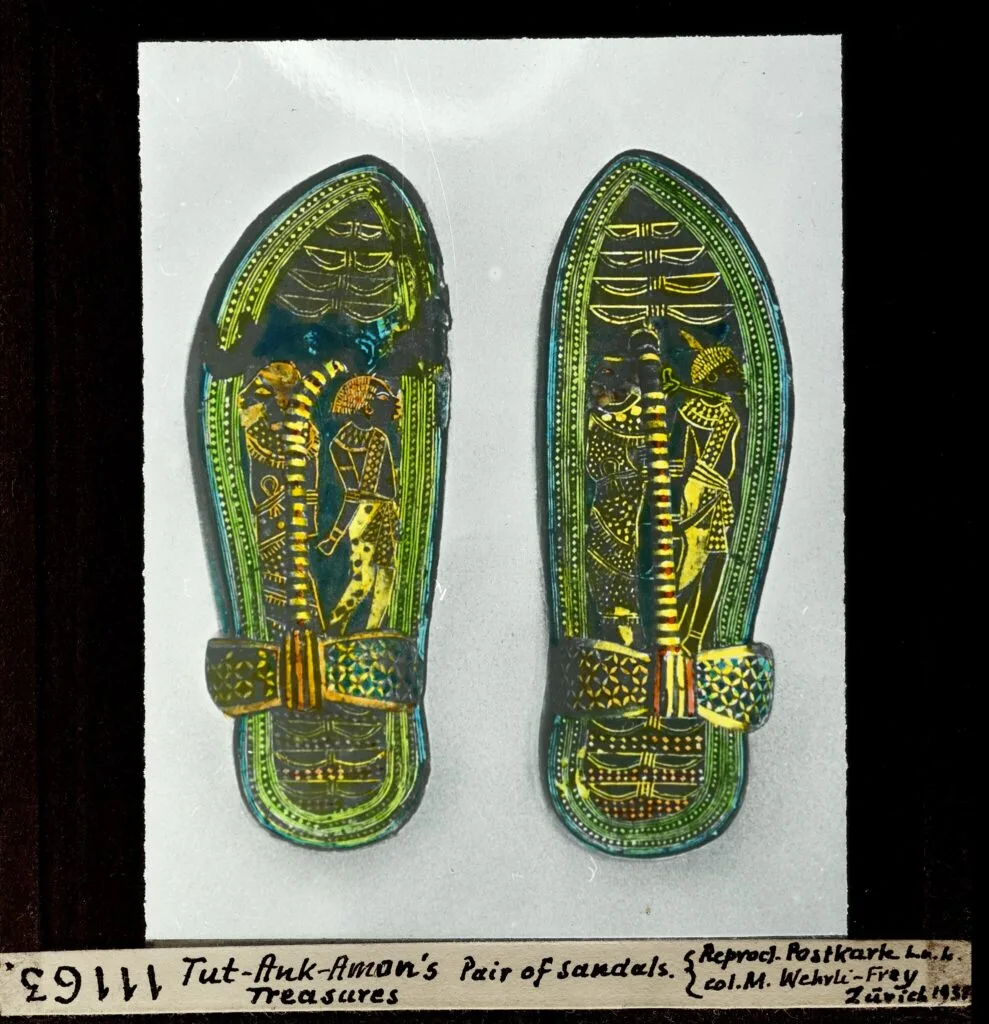 11163.
Tut-Ank-Amon's Pair of sandals.
Treasures
Reprod. Postkarte
col. M. Wehrli-Frey
Zürich